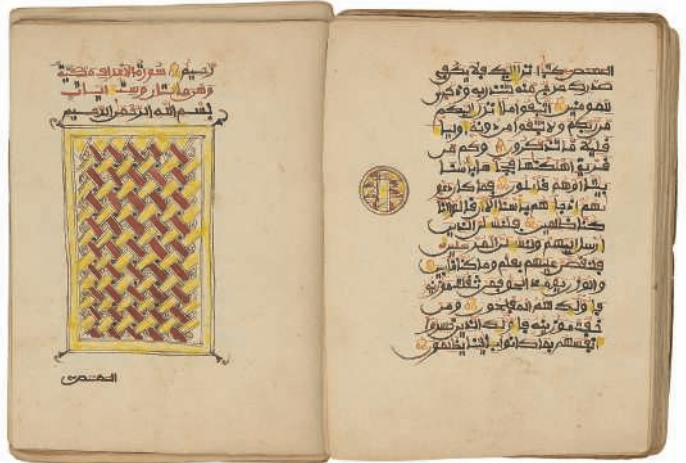 رحيم سورة الاعراف مكية
وهي مايتان وست ايات
بسم الله الرحمن الرحيم
المص
المص كتب انزل اليك فلا يكن في
صدرك حرج منه لتنذر به وذكرى
للمومنين اتبعوا ما انزل اليكم
من ربكم ولا تتبعوا من دونه اوليا
قليلا ما تذكرون وكم من
قرية اهلكنها فجاها باسنا
بيتا اوهم قايلون فما كان دعو
يهم اذ جاهم باسنا الا ان قالوا انا
كنا ظلمين فلنسئلن الذين
ارسل اليهم ولنسئلن المرسلين
فلنقصن عليهم بعلم وما كنا غايبين
والوزن يوميذ الحق فمن ثقلت موزينه
فاولئك هم المفلحون ومن
خفت موزينه فاولئك الذين خسروا
انفسهم بما كانوا بايتنا يظلمون